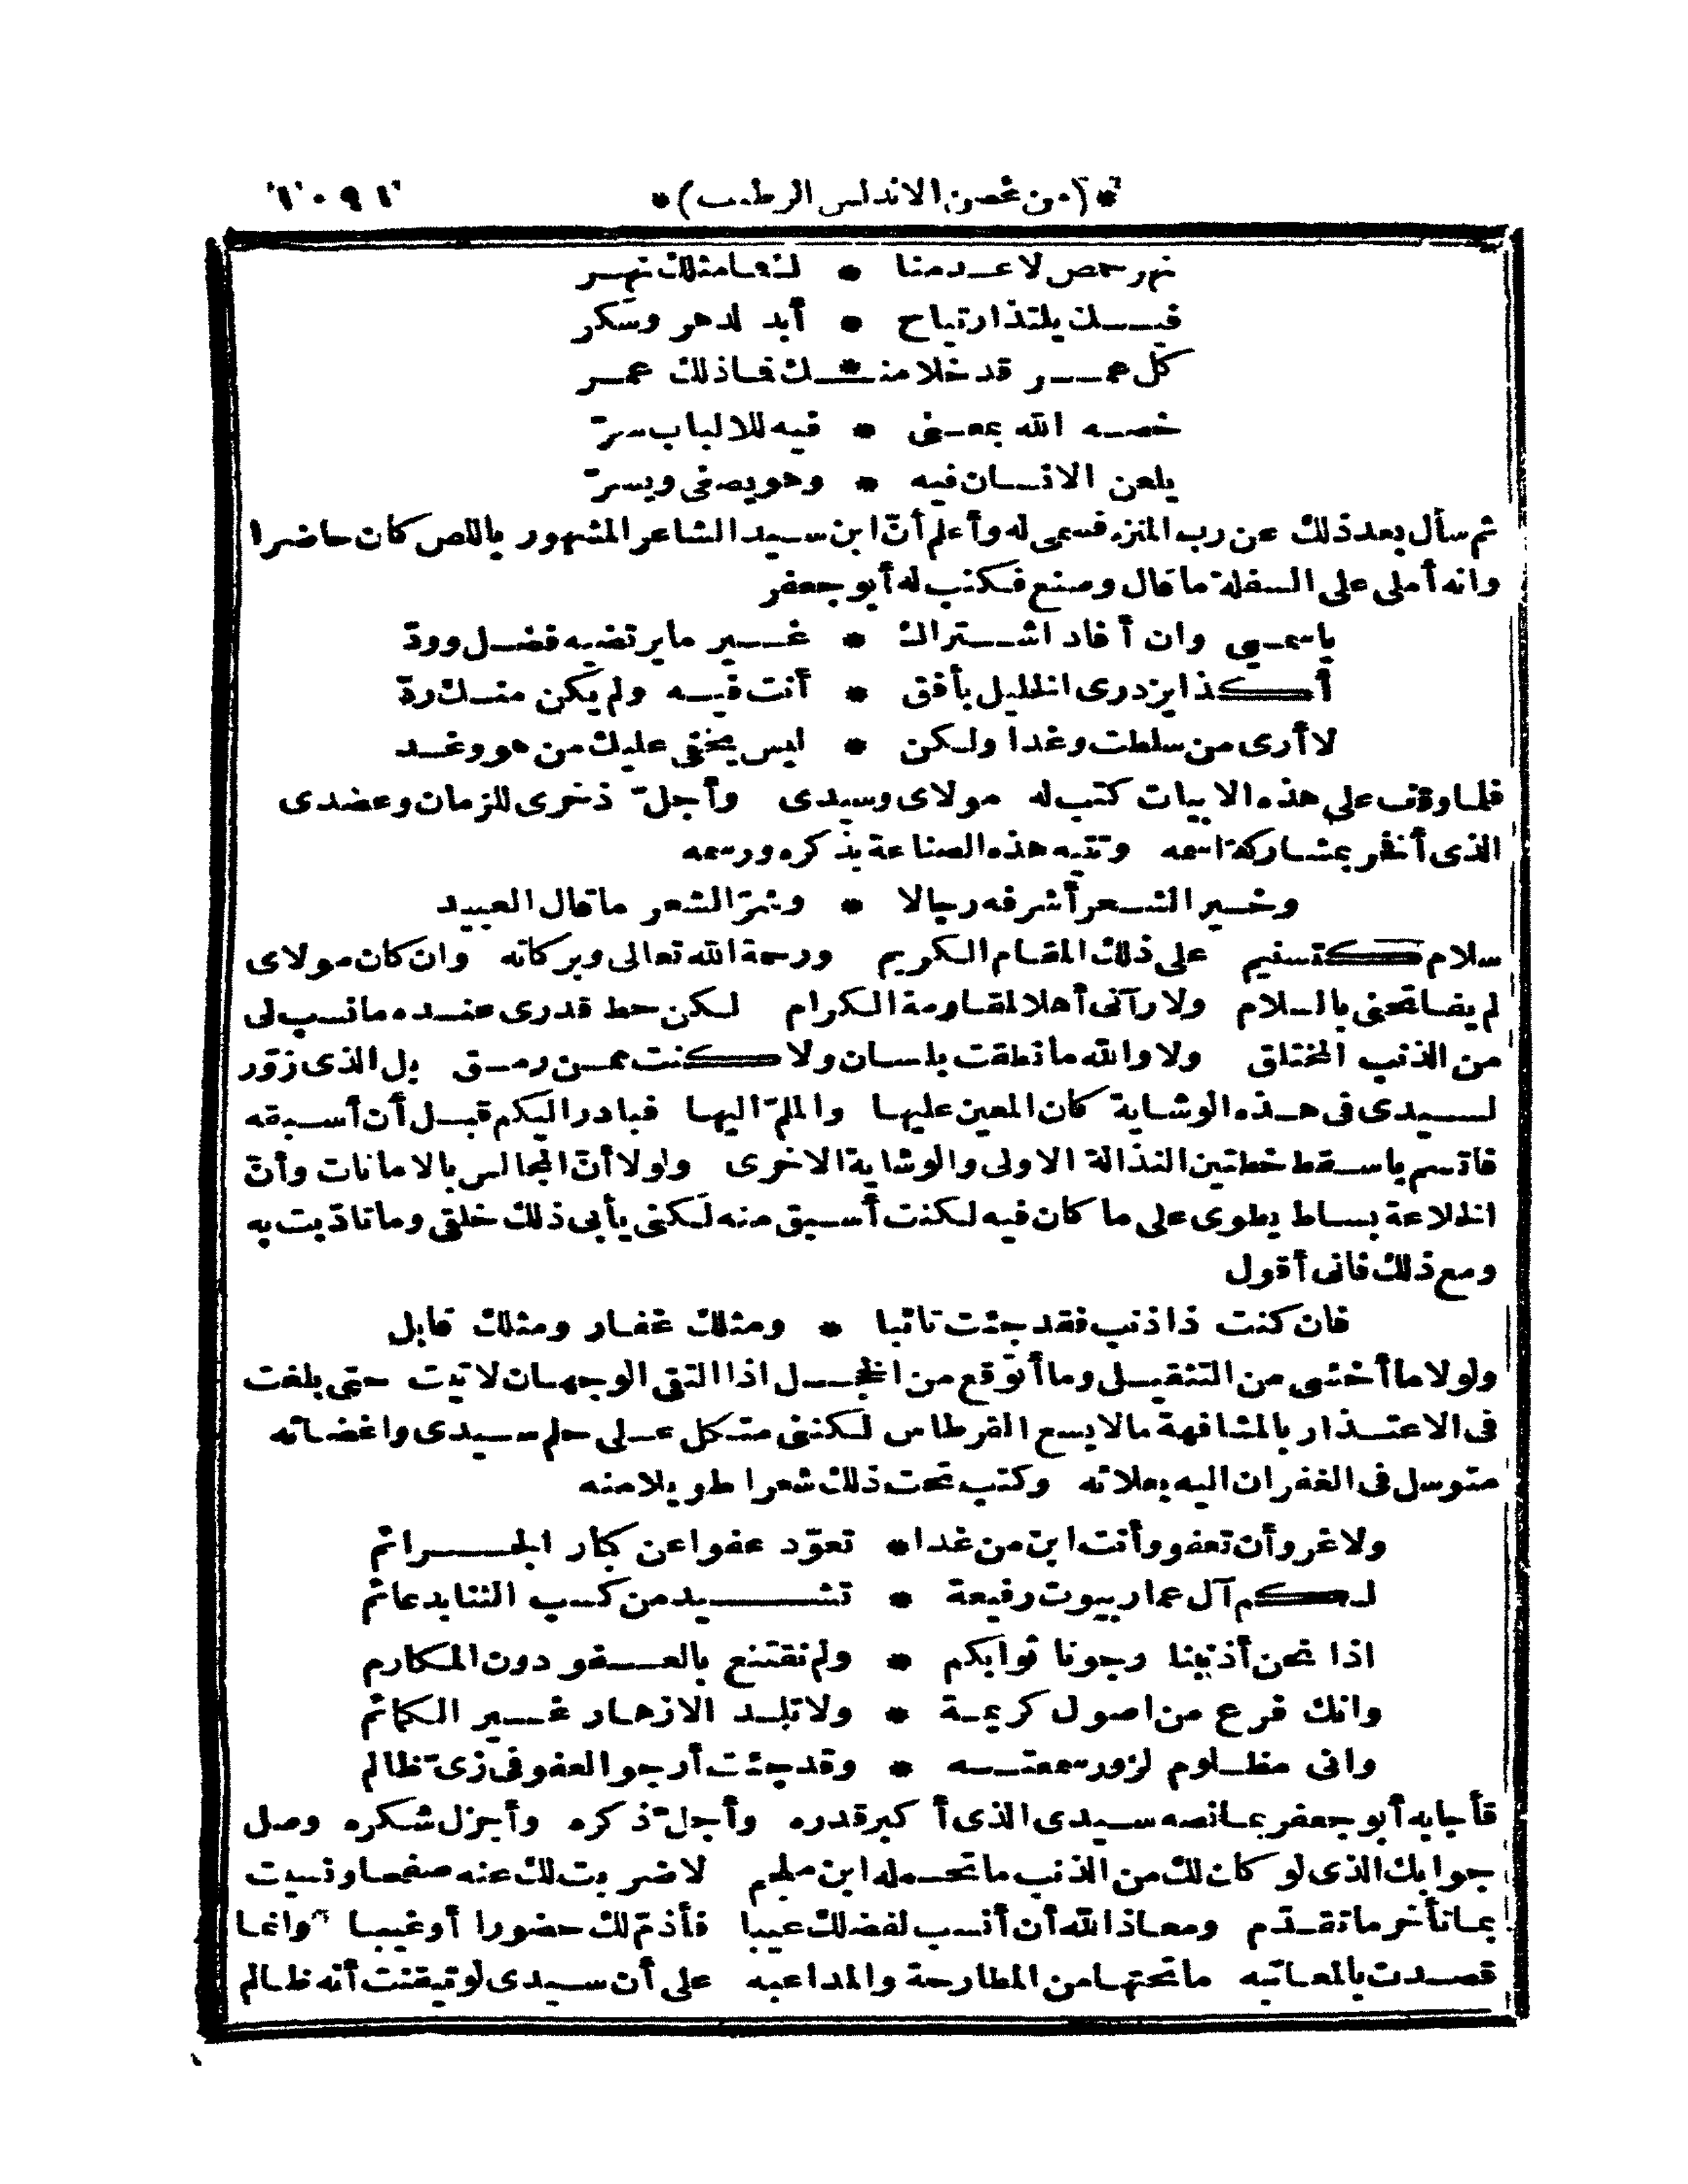 *(من غصن الاندلس الرطيب)* ١٠٩١
نهر حمص لا عدمنا * لذة ما مثلك نهر
فيك يلتذ ارتياح * أبد الدهر وسكر
كل عمر قد خلا منك * فما ذلك عمر
خصه الله بمعنى * فيه للالباب سرّ
يلعن الانسان فيه * وهو يصغى ويسرّ
ثم سأل بعد ذلك عن رب المنزه فسمى له وأعلم أنّ ابن سيد الشاعر المشهور باللص كان حاضرا
وانه أملى على السفلة ما قال وصنع فكتب له أبو جعفر
يا سمى وان أفاد اشتراك * غير ما يرتضيه فضل وودّ
أكذا يزدرى الخليل بأفق * أنت فيه ولم يكن منك ردّ
لا أرى من سلطت وغدا ولكن * ليس يخفى عليك من هو وغد
فلما وقف على هذه الابيات كتب له مولاى وسيدى وأجلّ ذخرى للزمان وعضدى
الذى أفخر بمشاركة اسمه وتتيه هذه الصناعة بذكره ورسمه
وخير الشعر أشرفه رجالا * وشرّ الشعر ما قال العبيد
سلام كتسنيم على ذلك المقام الكريم ورحمة الله تعالى وبركاته وان كان مولاى
لم يفاتحنى بالسلام ولا رآنى أهلا لمقاومة الكرام لكن حط قدرى عنده ما نسب لى
من الذنب المختلق ولا والله ما نطقت بلسان ولا كنت ممن رمق بل الذى زوّر
لسيدى فى هذه الوشاية كان المعين عليها والملمّ اليها فبادر اليكم قبل أن أسبقه
فاتسم باسقط خطتين النذالة الاولى والوشاية الاخرى ولولا أنّ المجالس بالامانات وأنّ
الخلاعة بساط يطوى على ما كان فيه لكنت أسبق منه لكنى يأبى ذلك خلقى وما تأدّبت به
ومع ذلك فانى أقول
فان كنت ذا ذنب فقد جئت تائبا * ومثلك غفار ومثلك قابل
ولولا ما أخشى من التثقيل وما أتوقع من الخجل اذا التقى الوجهان لاتيت حتى بلغت
فى الاعتذار بالمشافهة ما لا يسع القرطاس لكننى متكل على حلم سيدى واغضائه
متوسل فى الغفران اليه بعلائه وكتب تحت ذلك شعرا طويلا منه
ولا غرو أن تعفو وأنت ابن من غدا * تعوّد عفوا عن كبار الجرائم
لكم آل عمار بيوت رفيعة * تشيد من كسب الثنا بدعائم
اذا نحن أذنبنا رجونا ثوابكم * ولم نقتنع بالعفو دون المكارم
وانك فرع من اصول كريمة * ولا تلد الازهار غير الكمائم
وانى مظلوم لزور سمعته * وقد جئت أرجو العفو فى زىّ ظالم
فأجابه أبو جعفر بما نصه سيدى الذى أكبر قدره وأجلّ ذكره وأجزل شكره وصل
جوابك الذى لو كان لك من الذنب ما تحمله ابن ملجم لاضربت لك عنه صفحا ونسيت
بما تأخر ما تقدّم ومعاذ الله أن أنسب لفضلك عيبا فأذمّ لك حضورا أو غيبا وانما
قصدت بالمعاتبه ما تحتها من المطارحة والمداعبه على أن سيدى لو تيقنت أنه ظالم